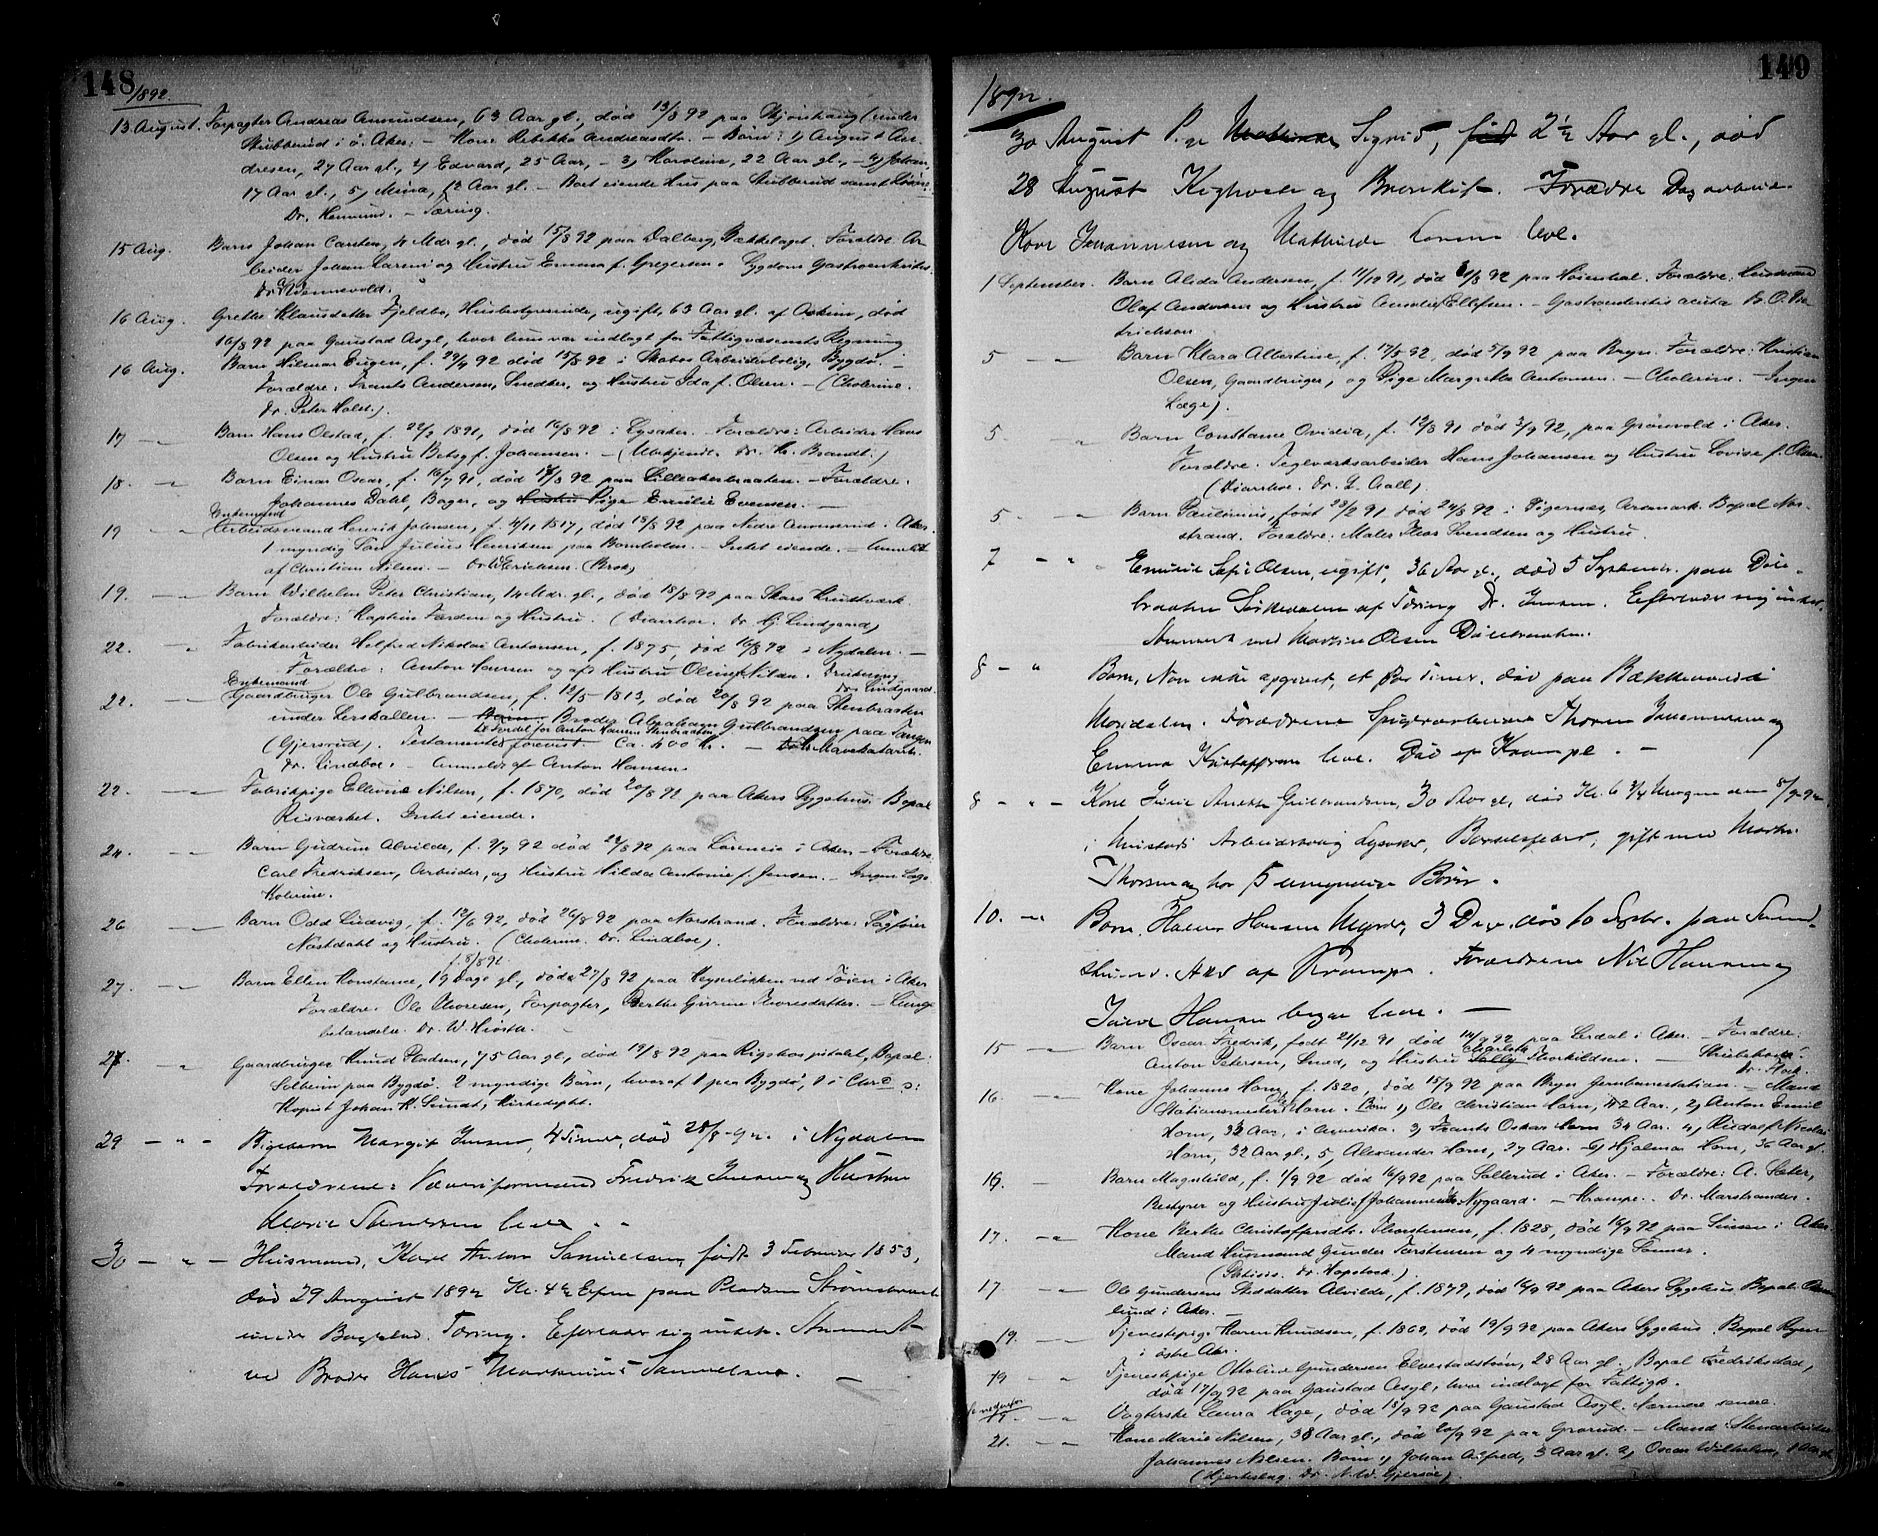 148
1892.
13 August. Forpagter Andreas Amundsen, 63 Aar gl., død 13/8 92 paa (under
Stubberud i Ø. Aker: – Kone Rebekka Andreasdtr. – Børn: 1) August An-
dresen, 27 Aar gl., 2) Edvard, 25 Aar, – 3) Karoline, 22 Aar gl., – 4) Johan,
17 Aar gl., 5) Mina, 12 Aar gl. – Boet eiende Hus paa Stubberud samt
Dr. – Tæring.
15 Aug. Barn Johan Carsten, 4 Mdr gl., død 15/8 92 paa Dalberg, Bækkelaget. Forældre: Ar-
beider Johan Larsen og Hustru Emma f. Gregersen. Sygdom Gastroenkritis.
Dr.
16 Aug. Grethe Klausdatter Fjeldbo, Husbestyrerinde, ugift, 63 Aar gl. af Askim, død
16/8 92 paa Gaustad Asyl, hvor hun var indlagt for Fattigvæsenets Regning
16 Aug. Barn Hilmar Eugen, f. 29/4 92 død 15/8 92 i Arbeiderbolig, Bygdø. –
Forældre: Frants Andersen, Snedker, og Hustru Ida f. Olsen. – (Cholerine.
Dr. Peter Holst.)
17 — Barn Hans Olstad, f. 22/2 1891, død 16/8 92 i Lysaker. Forældre: Arbeider Hans
Olsen og Hustru Betsy f. Johansen. – (Ubekjendt. Dr. Kr. Brandt.)
18. — " Barn Einar Oscar, f. 16/7 91, død 17/8 92 paa Lilleakerbraaten. – Forældre:
Johannes Dahl, Bager, og Hustru Pige Emilie Evensen. –
Enkemand
19 — " Arbeidsmand Henrik Johnsen, f. 4/11 1817, død 18/8 92 paa Nedre Ammerud i Aker.
1 myndig Søn Julius Henriksen paa Bornholm. – Intet eiende. – Anmeldt
af Christian Nilsen. – Dr. Erichsen. (Brok)
19. — " Barn Wilhelm Peter Christian, 14 Mdr. gl., død 18/8 92 paa Skars Krutværk.
Forældre: Kaptein Færden og Hustru. (Diarrhoe. Dr. Hj. Lindgaard)
22. — " Fabrikarbeider Helfred Nikolai Antonsen, f. 1875, død 16/8 92 i Nydalen. –
Forældre: Anton Hansen og afd Hustru Oline Nilsdr. Drukning.
Dr. Lindgaard.
Enkemand
22. — Gaardbruger Ole Gulbrandsen, f. 12/5 1813, død 20/8 92 paa Stenbraaten
under Lerskallen. – Barn Broder Abraham Gulbrandsen paa Tangen
til Fordel for Anton Hansen Stenbraaten
(Gjersrud). Testamente forevist. Ca. 400 Kr. – Mavekatarrh.
Dr. Lindboe. – Anmeldt af Anton Hansen.
22. — Fabrikpige Ellevine Nilsen, f. 1870, død 20/8 92 paa Akers Sygehus. Bopæl
Risværket. Intet eiende.
24. — Barn Gudrun Alvilde, f. 9/7 92 død 24/8 92 paa i Aker – Forældre:
Carl Fredriksen, Arbeider, og Hustru Hilda Antonie f. Jensen. – Ingen Læge
Kolerine.
26 — Barn Odd Ludvig, f. 12/6 92, død 26/8 92 paa Norstrand. Forældre: Sagfører
Nøstdahl og Hustru. (Cholerine. Dr. Lindboe).
f. 8/8 92
27. — Barn Ellen Konstance, 19 Dage gl., død 27/8 92 paa ved Tøien i Aker
Forældre: Ole Thoresen, Forpagter, Berthe Gurine Thoresdatter. – Lunge-
betændelse. Dr. W. Hiorth.
27. — " Gaardbruger Knud Pladsen, 75 Aar gl., død 19/8 92 paa Rigshospitalet, Bopæl:
Solheim paa Bygdø. 2 myndige Børn, hvoraf 1 paa Bygdø, 1 i Chr.a o:
Kopist Johan K. Sundt, Kirkedept.
29 — " – Pigebarn Margit Jensen, 4 Timer, død 28/8 – 92. i Nydalen
Forældrene: Væveriformand Fredrik Jensen og Hustru
Marie lever. –
30 — " — Husmand, Karl Anton Samuelsen, født 3 Februar 1853,
død 29 August 1892 Kl. 4½ Efm paa Pladsen Strømsbraaten
under Bogstad. Tæring. Efterlader sig intet. Anmeldt
ved Broder Hans Markinius Samuelsen. –
149
1892.
30 August Pige Mathinda Sigrid, født 2½ Aar gl., død
28 August Kighoste og Bronkit. Forældre Dagarbeider
Karl Johannesen og Mathilde Larsen leve.
1 September. Barn Alida Andersen, f. 11/12 91, død 31/8 92 paa Høienhal. Forældre: Husmand
Olaf Andersen og Hustru Annette Ellefsen. – Gastroenteritis acuta Dr. O.
Erichsen
5 — " Barn Klara Albertine, f. 17/5 92, død 5/9 92 paa Bryn. Forældre: Kristian
Olsen, Gaardbruger, og Pige Margrethe Antonsen. – Cholerine. – Ingen
Læge).
5. " Barn Constanse Ovidia, f. 12/8 91 død 3/9 92, paa Grønvold i Aker.
Forældre: Teglværksarbeider Hans Johansen og Hustru Lovise f. Olsen.
(Diarrhoe. Dr. L. Aall).
5 — " Barn Paulinius, født 23/2 91 død 24/8 92 i Tigernæs, Aremark. Bopæl Nor-
strand. Forældre: Maler Thor Svendsen og Hustru.
7 — " Emilie Sofie Olsen, ugift, 36 Aar gl., død 5 September paa Døle-
braaten Sørkedalen af Tæring Dr. Jensen. Efterlader sig intet.
Anmeldt ved Martin Olsen Dølebraaten.
8 — " Barn, Navn ikke opgivet, et Par Timer, død paa Bækkevold
Maridalen. Forældrene Spigerarbeider Thorvald Johannesen og
Emma Kristoffersen leve. Død af Krampe. –
8 — " – Kone Julie Anette Gulbrandsen, 30 Aar gl., død Kl. 6 3/4 Morgen den 8/9 – 92
i Mustads Arbeiderbolig Lysaker, Barselfeber, gift med Martin
Thorsen og har 5 umyndige Børn.
10. — " Barn, Halvor Hansen Myrer, 3 Dage, død 10 Septbr. paa
Aker af Krampe. Forældrene Nils Hansen og
Julie Hansen begge leve. –
15 — Barn Oscar Fredrik, født 21/12 91 død 14/9 92 paa Lerdal i Aker – Forældre:
Charlotte
Anton Petersen, Smed, og Hustru Sally Thorkildsen. – Strubehoste.
Dr. Stoch.
16. — " Kone Johanne Horn, f. 1820, død 15/9 92 paa Bryn Jernbanestation. – Mand
Stationsmester Horn. Børn 1) Ole Christian Horn, 42 Aar., 2) Anton Emil
Horn, 32 Aar, i Amerika. 3) Frants Oskar Horn 34 Aar. 4) Nicolai
Horn, 32 Aar gl., 5, Alexander Horn, 27 Aar. 6) Hjalmar Horn, 36 Aar gl.
16. — Barn Magnhild, f. 1/9 92 død 16/9 92 paa Sollerud i Aker. – Forældre: A. Sæter,
Bestyrer og Hustru Nygaard. – Krampe. Dr. Marstrander.
17. — " Kone Berthe Christoffersdtr. Thorstensen, f. 1828, død 16/9 92 paa Sinsen i Aker.
Mand Husmand Gunder Torstensen og 4 myndige Sønner.
(Phtisis. Dr. Hopstock.)
17 — " Ole Gundersens Steddatter Alvilde, f. 1879, død 16/9 92 paa Akers Sygehus Bopæl
lund i Aker. –
19. — " Tjenestepige Karen Knudsen, f. 1862, død 19/9 92 paa Akers Sygehus. Bopæl Ryen
i Østre Aker.
19 — " Tjenestepige Ottoline Gundersen Elvestadstøen, 28 Aar gl. Bopæl Fredrikstad,
død 17/9 92 paa Gaustad Asyl, hvor indlagt for Fattigk.
se nedenfor
19. — " Vogterske Laura Hage, død 18/9 92 paa Gaustad Asyl. Nærmere senere.
21. — " Kone Marie Nilsen, 38 Aar gl., død 20/9 92 paa Grorud. – Mand: Stenarbeider
Johannes Nilsen. Børn: 1) Johan Alfred, 3 Aar gl. 2) Oscar Wilhelm, 1 Aar gl.
(Hjerteslag. Dr. N. W. Gjersøe).